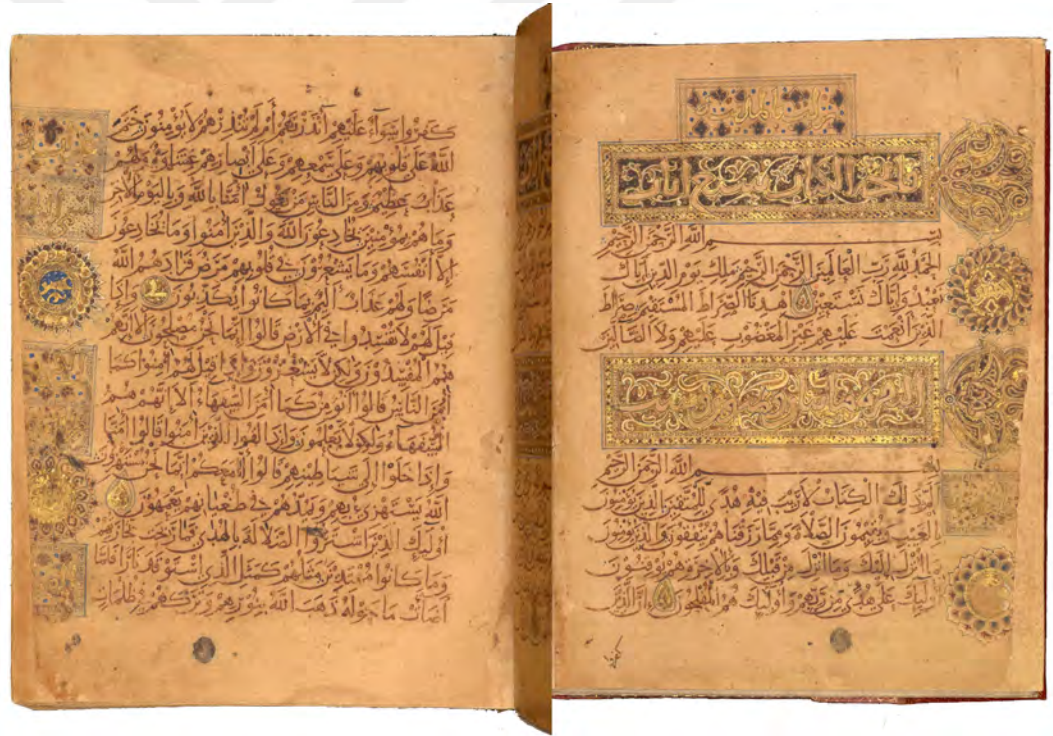 فاتحة الكتاب سبع ايات
بسم الله الرحمن الرحيم
الحمد لله رب العالمين الرحمن الرحيم ملك يوم الدين اياك
نعبد واياك نستعين اهدنا الصراط المستقيم صراط
الذين انعمت عليهم غير المغضوب عليهم ولا الضالين
بسم الله الرحمن الرحيم
الم ذلك الكتاب لا ريب فيه هدى للمتقين الذين يؤمنون
بالغيب ويقيمون الصلاة ومما رزقناهم ينفقون والذين يؤمنون
بما انزل اليك وما انزل من قبلك وبالاخرة هم يوقنون
اوليك على هدى من ربهم واوليك هم المفلحون ان الذين
كفروا سواء عليهم أأنذرتهم أم لم تنذرهم لا يؤمنون ختم
الله على قلوبهم وعلى سمعهم وعلى أبصارهم غشاوة ولهم
عذاب عظيم ومن الناس من يقول امنا بالله وباليوم الاخر
وما هم بمومنين يخادعون الله والذين امنوا وما يخادعون
إلا أنفسهم وما يشعرون في قلوبهم مرض فزادهم الله
مرضا ولهم عذاب أليم بما كانوا يكذبون وإذا
قيل لهم لا تفسدوا في الأرض قالوا إنما نحن مصلحون ألا انهم
هم المفسدون ولكن لا يشعرون وإذا قيل لهم امنوا كما
آمن الناس قالوا أنومن كما آمن السفهاء ألا إنهم هم
السفهاء ولكن لا يعلمون وإذا لقوا الذين آمنوا قالوا آمنا
وإذا خلوا إلى شياطينهم قالوا إنا معكم إنما نحن مستهزون
الله يستهزئ بهم ويمدهم في طغيانهم يعمهون
أوليك الذين اشتروا الضلالة بالهدى فما ربحت تجارتهم
وما كانوا مهتدين مثلهم كمثل الذي استوقد نارا فلما
أضاءت ما حوله ذهب الله بنورهم وتركهم في ظلمات